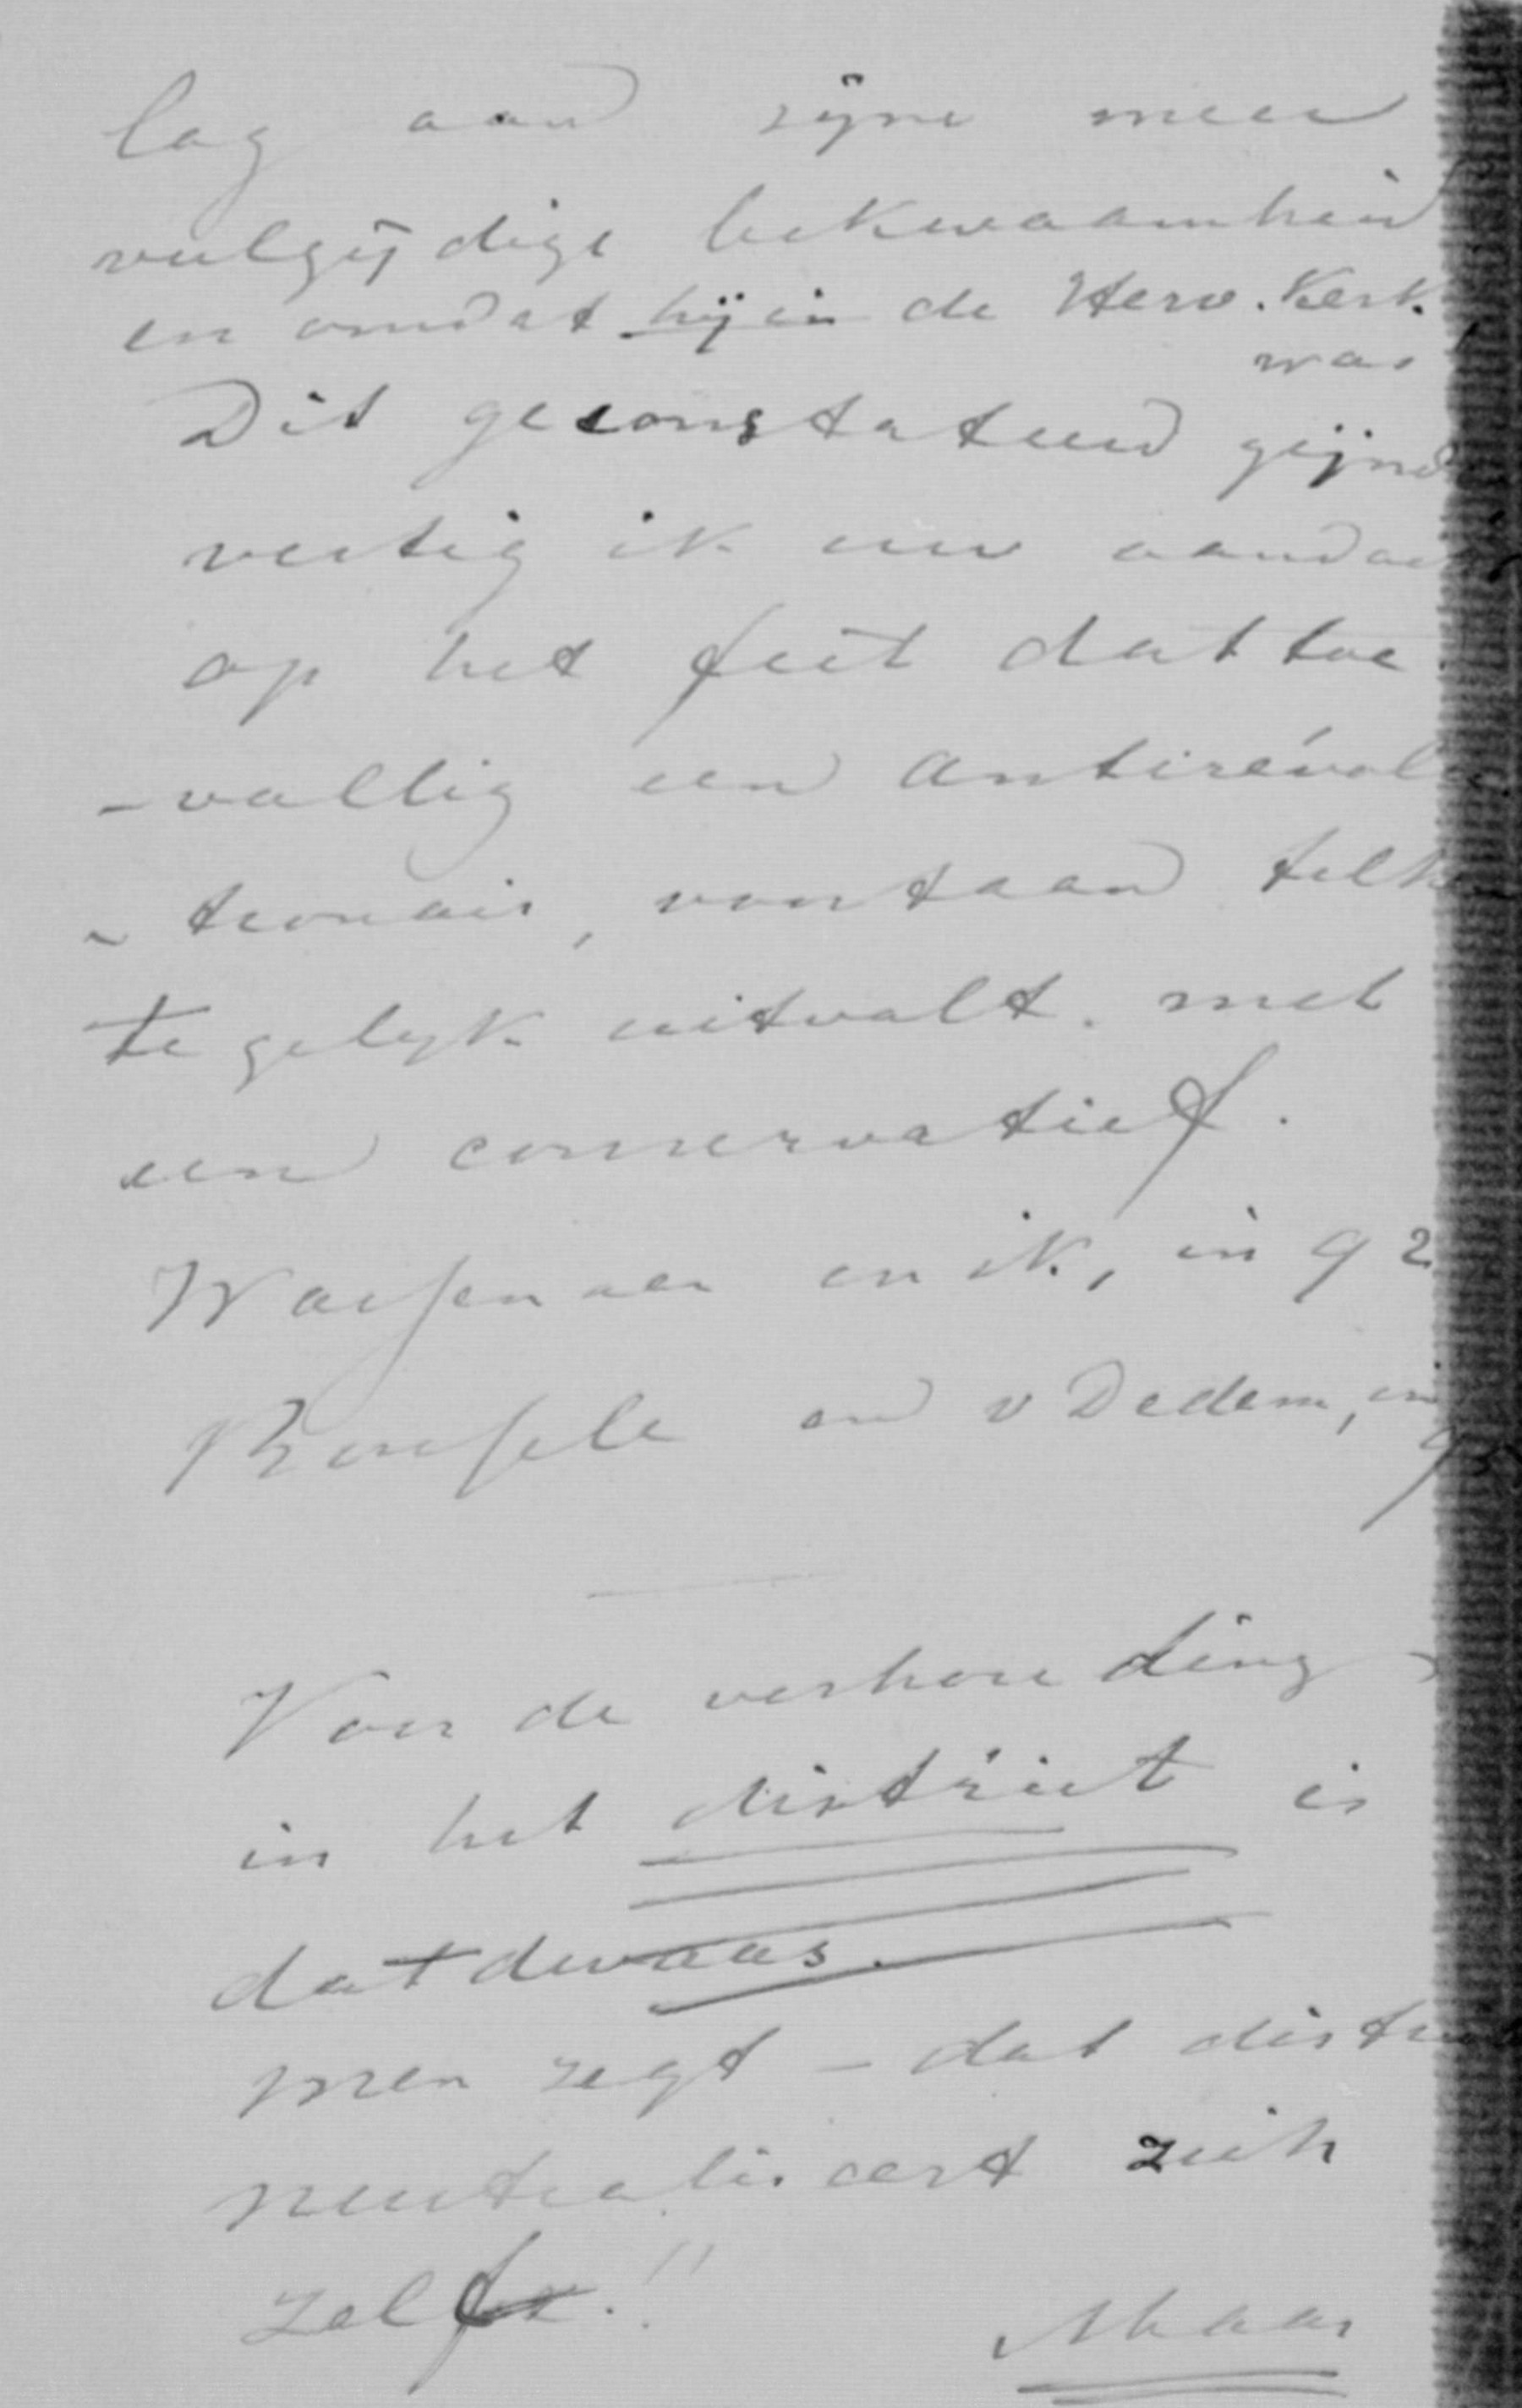 lag aan zyne meer
veelzijdige bekwaamheid
en omdat hij in de Herv. Kerk
was
Dit geconstateerd zijnd
vestig ik uw aandac
op het feit dat toe
-vallig een antirévol
tionair, voortaan telke
te gelyk uitvalt. met
een conservatief.
Wassenaer en ik, in 92
en v Dedem, in
9
Voor de verhouding
in het district is
dat dwaas.
men zegt - dat distr
neutraliseert zich
zelf.!!
Maar